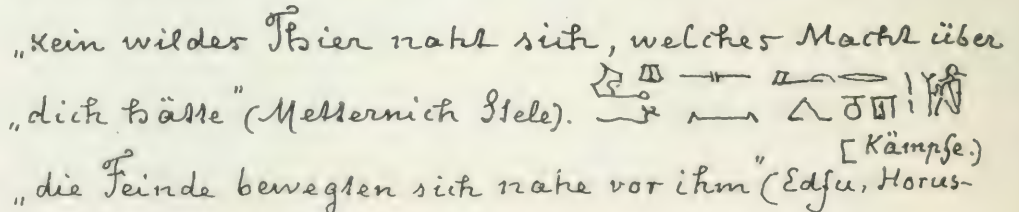 „Kein wildes Thier naht sich, welches Macht über
„dich hätte" (Metternich Stele).
[Kämpfe.)
„die Feinde bewegten sich nahe vor ihm" (Edfu, Horus-